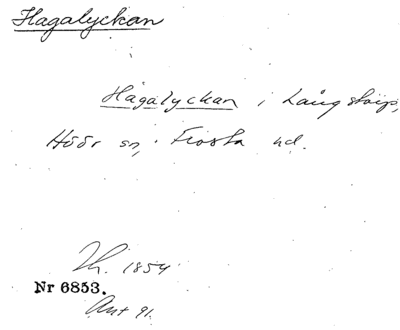 Hagalyckan
Hagalyckan i Långstorp,
Höör sn, Frosta hd.
Th. 1854
Nr 6853.
Ant 91.